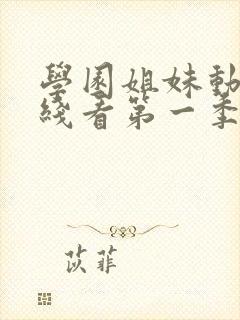 學園姐妹動
綫看第一季
苡菲